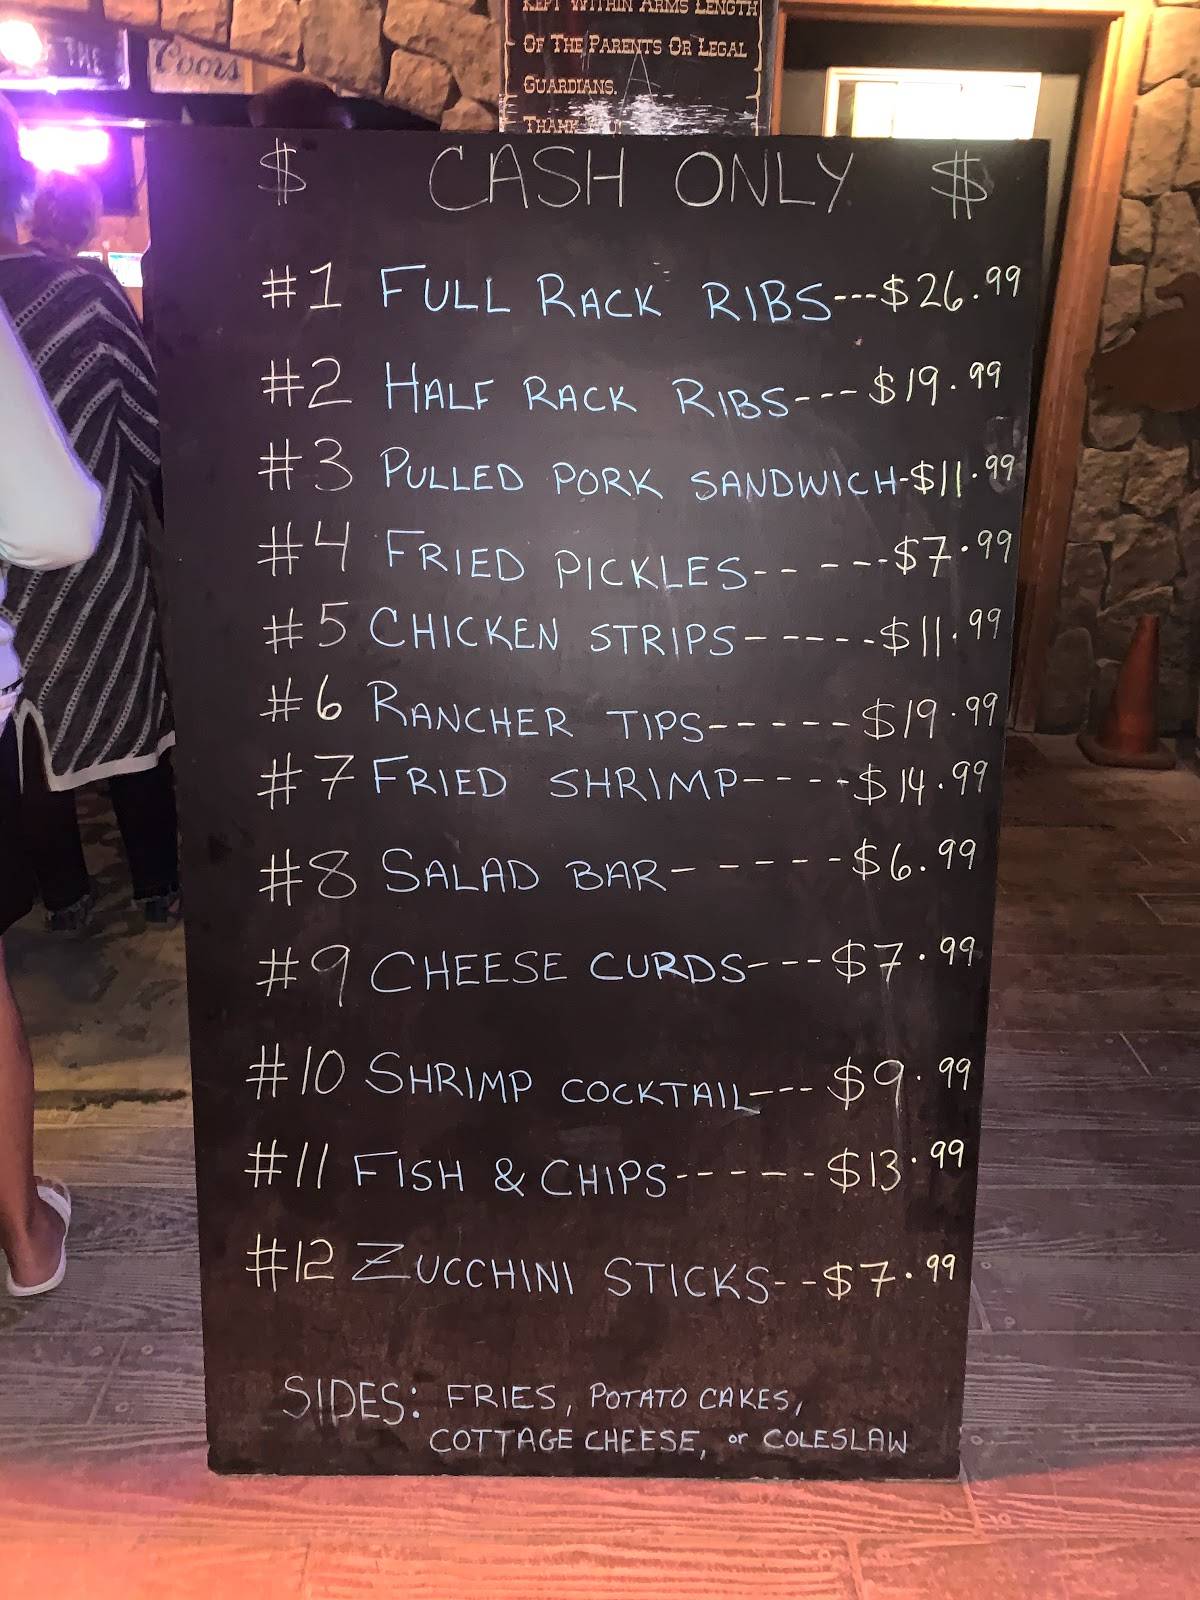 THE
Coors
KEPT WITHIN ARMS LENGTH
OF THE PARENTS OR LEGAL
GUARDIANS.
$ CASH ONLY $
#1 FULL RACK RIBS---$26.99
#2 HALF RACK RIBS---$19.99
#3 PULLED PORK SANDWICH-$11.99
#4 FRIED PICKLES-- ---$7.99
#5 CHICKEN STRIPS-----$11.99
#6 RANCHER TIPS-----$19.99
#7 FRIED SHRIMP----$14.99
#8 SALAD BAR-----$6.99
#9 CHEESE CURDS---$7.99
#10 SHRIMP COCKTAIL---$9.99
#11 FISH & CHIPS-----$13.99
#12 ZUCCHINI STICKS--$7.99
SIDES: FRIES, POTATO CAKES,
COTTAGE CHEESE, or COLESLAW